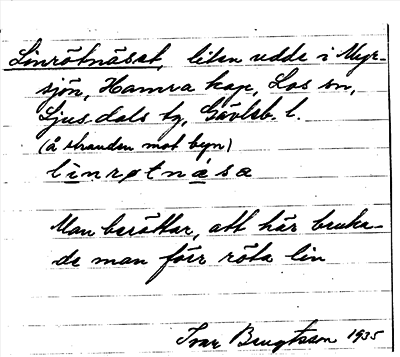 Linrötnäset, liten udde i Myr-
sjön, Hamra kap, Los sn,
Ljusdals tg, Gävleb. l.
(å stranden mot byn)
linrøtnåsa
Man berättar, att här bruka-
de man förr röta lin
Ivar Bengtsson 1935